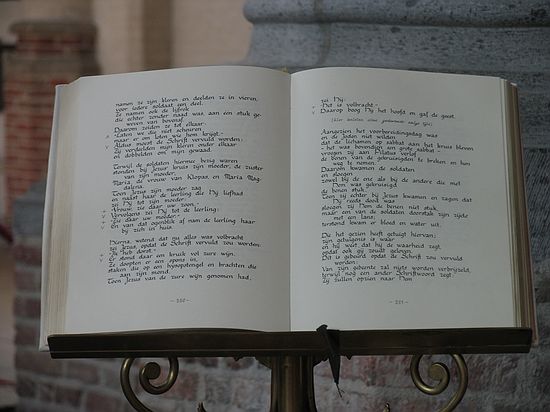 namen ze zijn kleren en deelden ze in vieren,
voor iedere soldaat een deel.
Ze namen ook de lijfrok
die echter zonder naad was, aan een stuk ge-
weven van bovenaf.
Daarom zeiden ze tot elkaar:
Laten we die niet scheuren
maar er om loten wie hem krijgt.
Aldus moest de Schrift vervuld worden:
Zij verdeelden mijn kleren onder elkaar
en dobbelden om mijn gewaad.
Terwijl de soldaten hiermee bezig waren
stonden bij Jezus kruis zijn moeder, de zuster
van zijn moeder,
Maria de vrouw van Klopas, en Maria Mag-
dalena.
Toen Jezus zijn moeder zag
en naast haar de leerling die Hij liefhad
zei Hij tot zijn moeder:
Vrouw, zie daar uw zoon.
Vervolgens zei Hij tot de leerling:
Zie daar uw moeder.
En van dat ogenblik af nam de leerling haar
bij zich in huis.
Hierna, wetend dat nu alles was volbracht
zei Jezus, opdat de Schrift vervuld zou worden:
Ik heb dorst.
Er stond daar een kruik vol zure wijn.
Ze doopten er een spons in,
staken die op een hysopstengel en brachten die
aan zijn mond.
Toen Jezus van de zure wijn genomen had,
- 200 -
zei Hij:
Het is volbracht.
Daarop boog Hij het hoofd en gaf de geest.
Aangezien het voorbereidingsdag was
en de Joden niet wilden
dat de lichamen op sabbat aan het kruis bleven
- het was bovendien een grote sabbat -
vroegen zij aan Pilatus verlof
de benen van de gekruisigden te breken en hen
weg te nemen.
Daarom kwamen de soldaten
en sloegen
zowel bij de ene als bij de andere die met
Hem was gekruisigd
de benen stuk.
Toen zij echter bij Jezus kwamen en zagen dat
Hij reeds dood was
sloegen zij Hem de benen niet stuk,
maar een van de soldaten doorstak zijn zijde
met een lans;
terstond kwam er bloed en water uit.
Die het gezien heeft getuigt hiervan;
zijn getuigenis is waar
en hij weet dat hij de waarheid zegt,
opdat ook gij zoudt geloven.
Dit is gebeurd opdat de Schrift zou vervuld
worden:
Van zijn gebeente zal niets worden verbrijzeld,
terwijl nog een ander Schriftwoord zegt:
Zij zullen opzien naar Hem
- 201 -